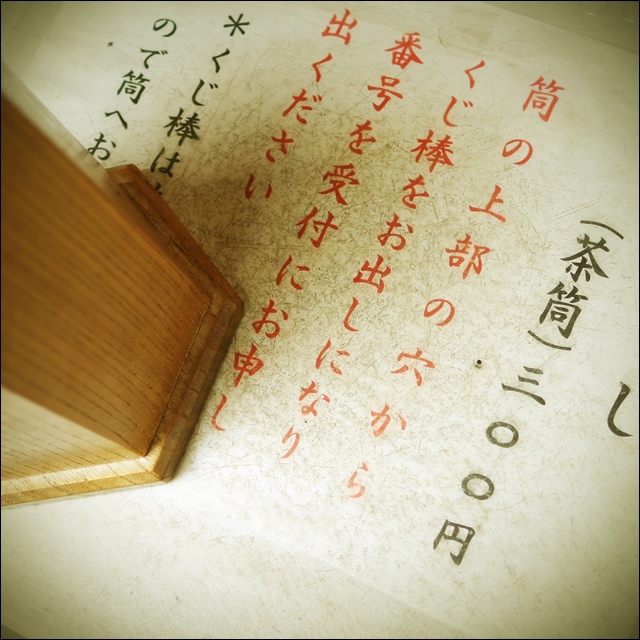 し
（茶筒）三〇〇円
筒の上部の穴から
くじ棒をお出しになり
番号を受付にお申し
出ください
＊くじ棒は
ので筒へお